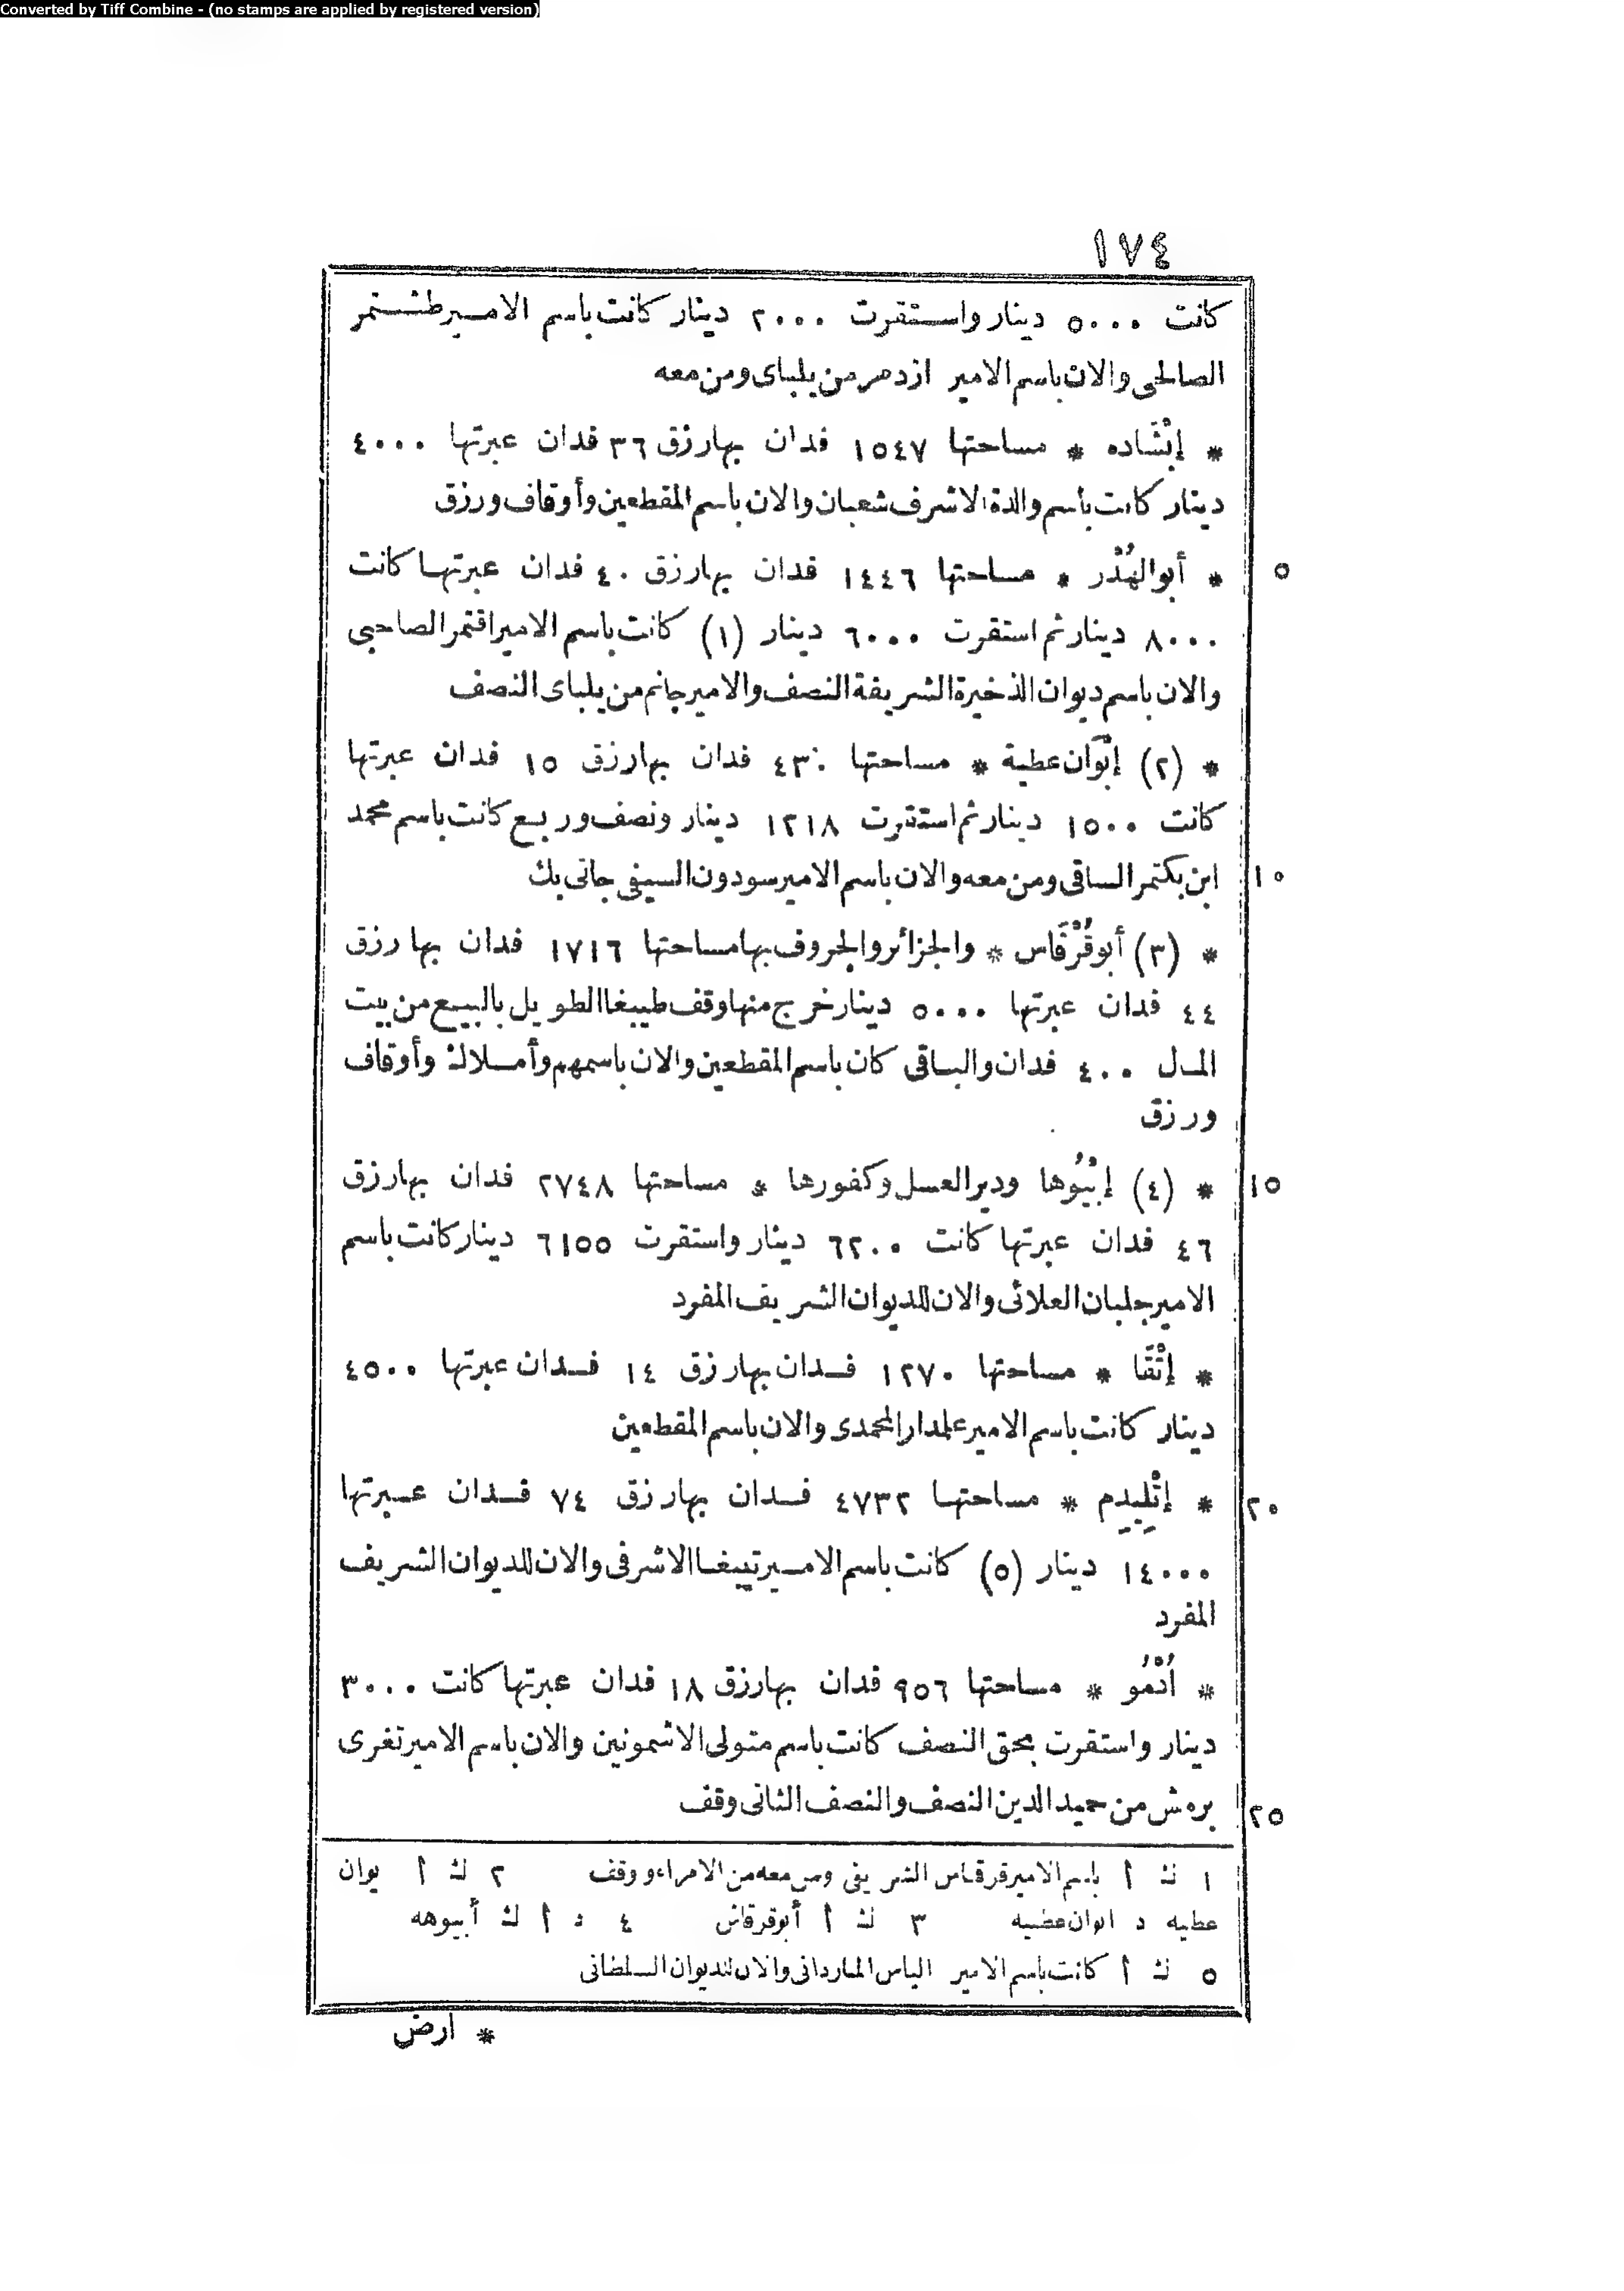 Converted by Tiff Combine - (no stamps are applied by registered version)
١٧٤
كانت ٥٠٠٠ دينار واستقرت ٢٠٠٠ دينار كانت باسم الامير طشتمر
الصالحى والان باسم الامير ازدمر من يلباى ومن معه
* إبْشَاده * مساحتها ١٥٤٧ فدان بها رزق ٣٦ فدان عبرتها ٤٠٠٠
دينار كانت باسم والدة الاشرف شعبان والان باسم المقطعين وأوقاف ورزق
* أبو الهُدْر * مساحتها ١٤٤٦ فدان بها رزق ٤٠ فدان عبرتها كانت ٥
٨٠٠٠ دينار ثم استقرت ٦٠٠٠ دينار (١) كانت باسم الامير اقتمر الصاحبى
والان باسم ديوان الذخيرة الشريفة النصف والامير جانم من يلباى النصف
* (٢) إبْوَان عطية * مساحتها ٤٣٠ فدان بها رزق ١٥ فدان عبرتها
كانت ١٥٠٠ دينار ثم استقرت ١٢١٨ دينار ونصف وربع كانت باسم محمد
ابن بكتمر الساقى ومن معه والان باسم الامير سودون السيفى جانى بك ١٠
* (٣) أبو قُرْقَاس * والجزائر والجروف بها مساحتها ١٧١٦ فدان بها رزق
٤٤ فدان عبرتها ٥٠٠٠ دينار خرج منها وقف طيبغا الطويل بالبيع من بيت
المال ٤٠٠ فدان والباقى كان باسم المقطعين والان باسمهم وأملاك وأوقاف
ورزق
* (٤) إبْيُوها ودير العسل وكفورها * مساحتها ٢٧٤٨ فدان بها رزق ١٥
٤٦ فدان عبرتها كانت ٦٢٠٠ دينار واستقرت ٦١٥٥ دينار كانت باسم
الامير جلبان العلائى والان للديوان الشريف المفرد
* إتْقَا * مساحتها ١٢٧٠ فدان بها رزق ١٤ فدان عبرتها ٤٥٠٠
دينار كانت باسم الامير علمدار المحمدى والان باسم المقطعين
* إتْلِيدِم * مساحتها ٤٧٣٢ فدان بها رزق ٧٤ فدان عبرتها ٢٠
١٤٠٠٠ دينار (٥) كانت باسم الامير تيبغا الاشرفى والان للديوان الشريف
المفرد
* أُدْمُو * مساحتها ٩٥٦ فدان بها رزق ١٨ فدان عبرتها كانت ٣٠٠٠
دينار واستقرت بحق النصف كانت باسم متولى الاشمونين والان باسم الامير تغرى
برمش من حميد الدين النصف والنصف الثانى وقف ٢٥
١ ك أ باسم الامير قرقماس الشريفى ومن معه من الامراء ووقف ٢ ك أ يوان
عطيه د ابوان عطيه ٣ ك أ أبو قرقاش ٤ د أ ك أبيوهه
٥ ك أ كانت باسم الامير الياس الماردانى والان للديوان السلطانى
* ارض